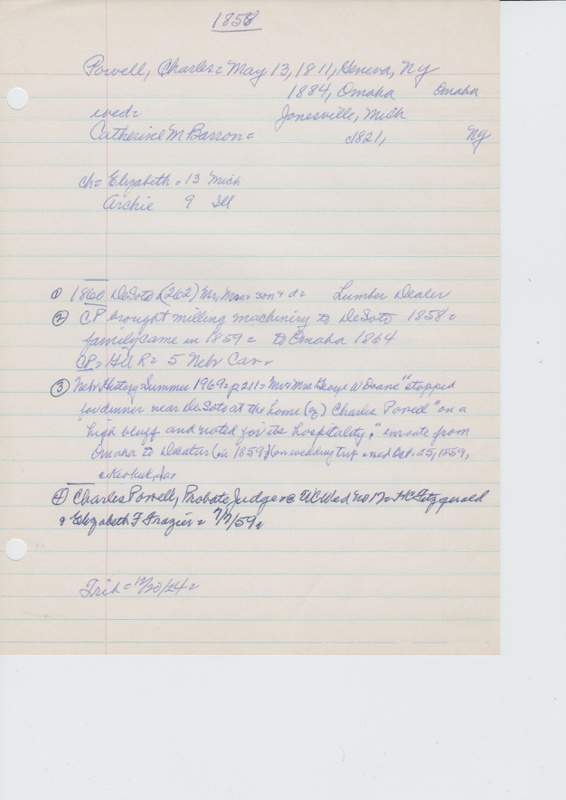 1858
Powell, Charles = May 13, 1811, Geneva, NY
1884, Omaha Omaha
wed = Jonesville, Mich
Catherine M Barron = c1821, NY
ch = Elizabeth = 13 Mich
Archie 9 Ill
① 1860 DeSoto (262) Mr, Mrs = son & d = Lumber Dealer
② CP brought milling machinery to DeSoto 1858 =
family came in 1859 = to Omaha 1864
CP = H & R = 5 Nebr Cav.
③ Nebr History = Summer 1969 = p211 = Mr & Mrs George W Doane "stopped
for dinner near DeSoto at the home (of) Charles Powell "on a
high bluff and noted for its hospitality," enroute from
Omaha to Decatur (in 1859) (on wedding trip = wed Oct. 25, 1859,
Keokuk, Ia
④ Charles Powell, Probate Judge = @ WC Wed No 17 = HC Fitzgerald
& Elizabeth F Frazier = 7/7/59 =
Trib = 12/20/24 =